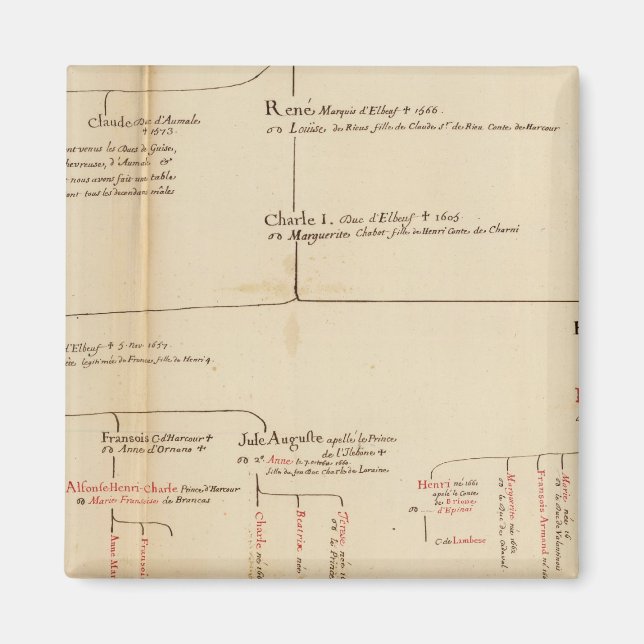 Claude Duc d'Aumale
✝ 1573.
ont venus les Ducs de Guise,
hevreuse, d'Aumale &
t nous avons fait une table
ont tous les decendans mâles
René Marquis d'Elbeuf ✝ 1566.
ꝏ Louïse de Rieus fille de Claude Sr. de Rieu Conte de Harcour
Charle I. Duc d'Elbeuf ✝ 1605.
ꝏ Marguerite Chabot fille de Henri Conte de Charni
d'Elbeuf ✝ 5. Nov. 1657.
legitimée de France, fille de Henri 4.
Fransois C. d'Harcour ✝
ꝏ Anne d'Ornano ✝
Jule Auguste apellé le Prince
de l'Ilebone ✝
ꝏ 2°. Anne le 7. octobr. 1660.
fille du feu Duc Charle de Loraine
Alfonse-Henri-Charle Prince d'Harcour
ꝏ Marie Fransoise de Brancas
Anne Ma
Fransois
Charle né 166
Beatrix née
Terese née 16
ꝏ le Prince
Henri né 1661
apelé le Conte
de Brione
d'Epinai
C. de Lambese
Marguerite née 1662
ꝏ le Duc de Cadaval
Fransois Armand né
Marie née 16
ꝏ le Duc de Valentinois